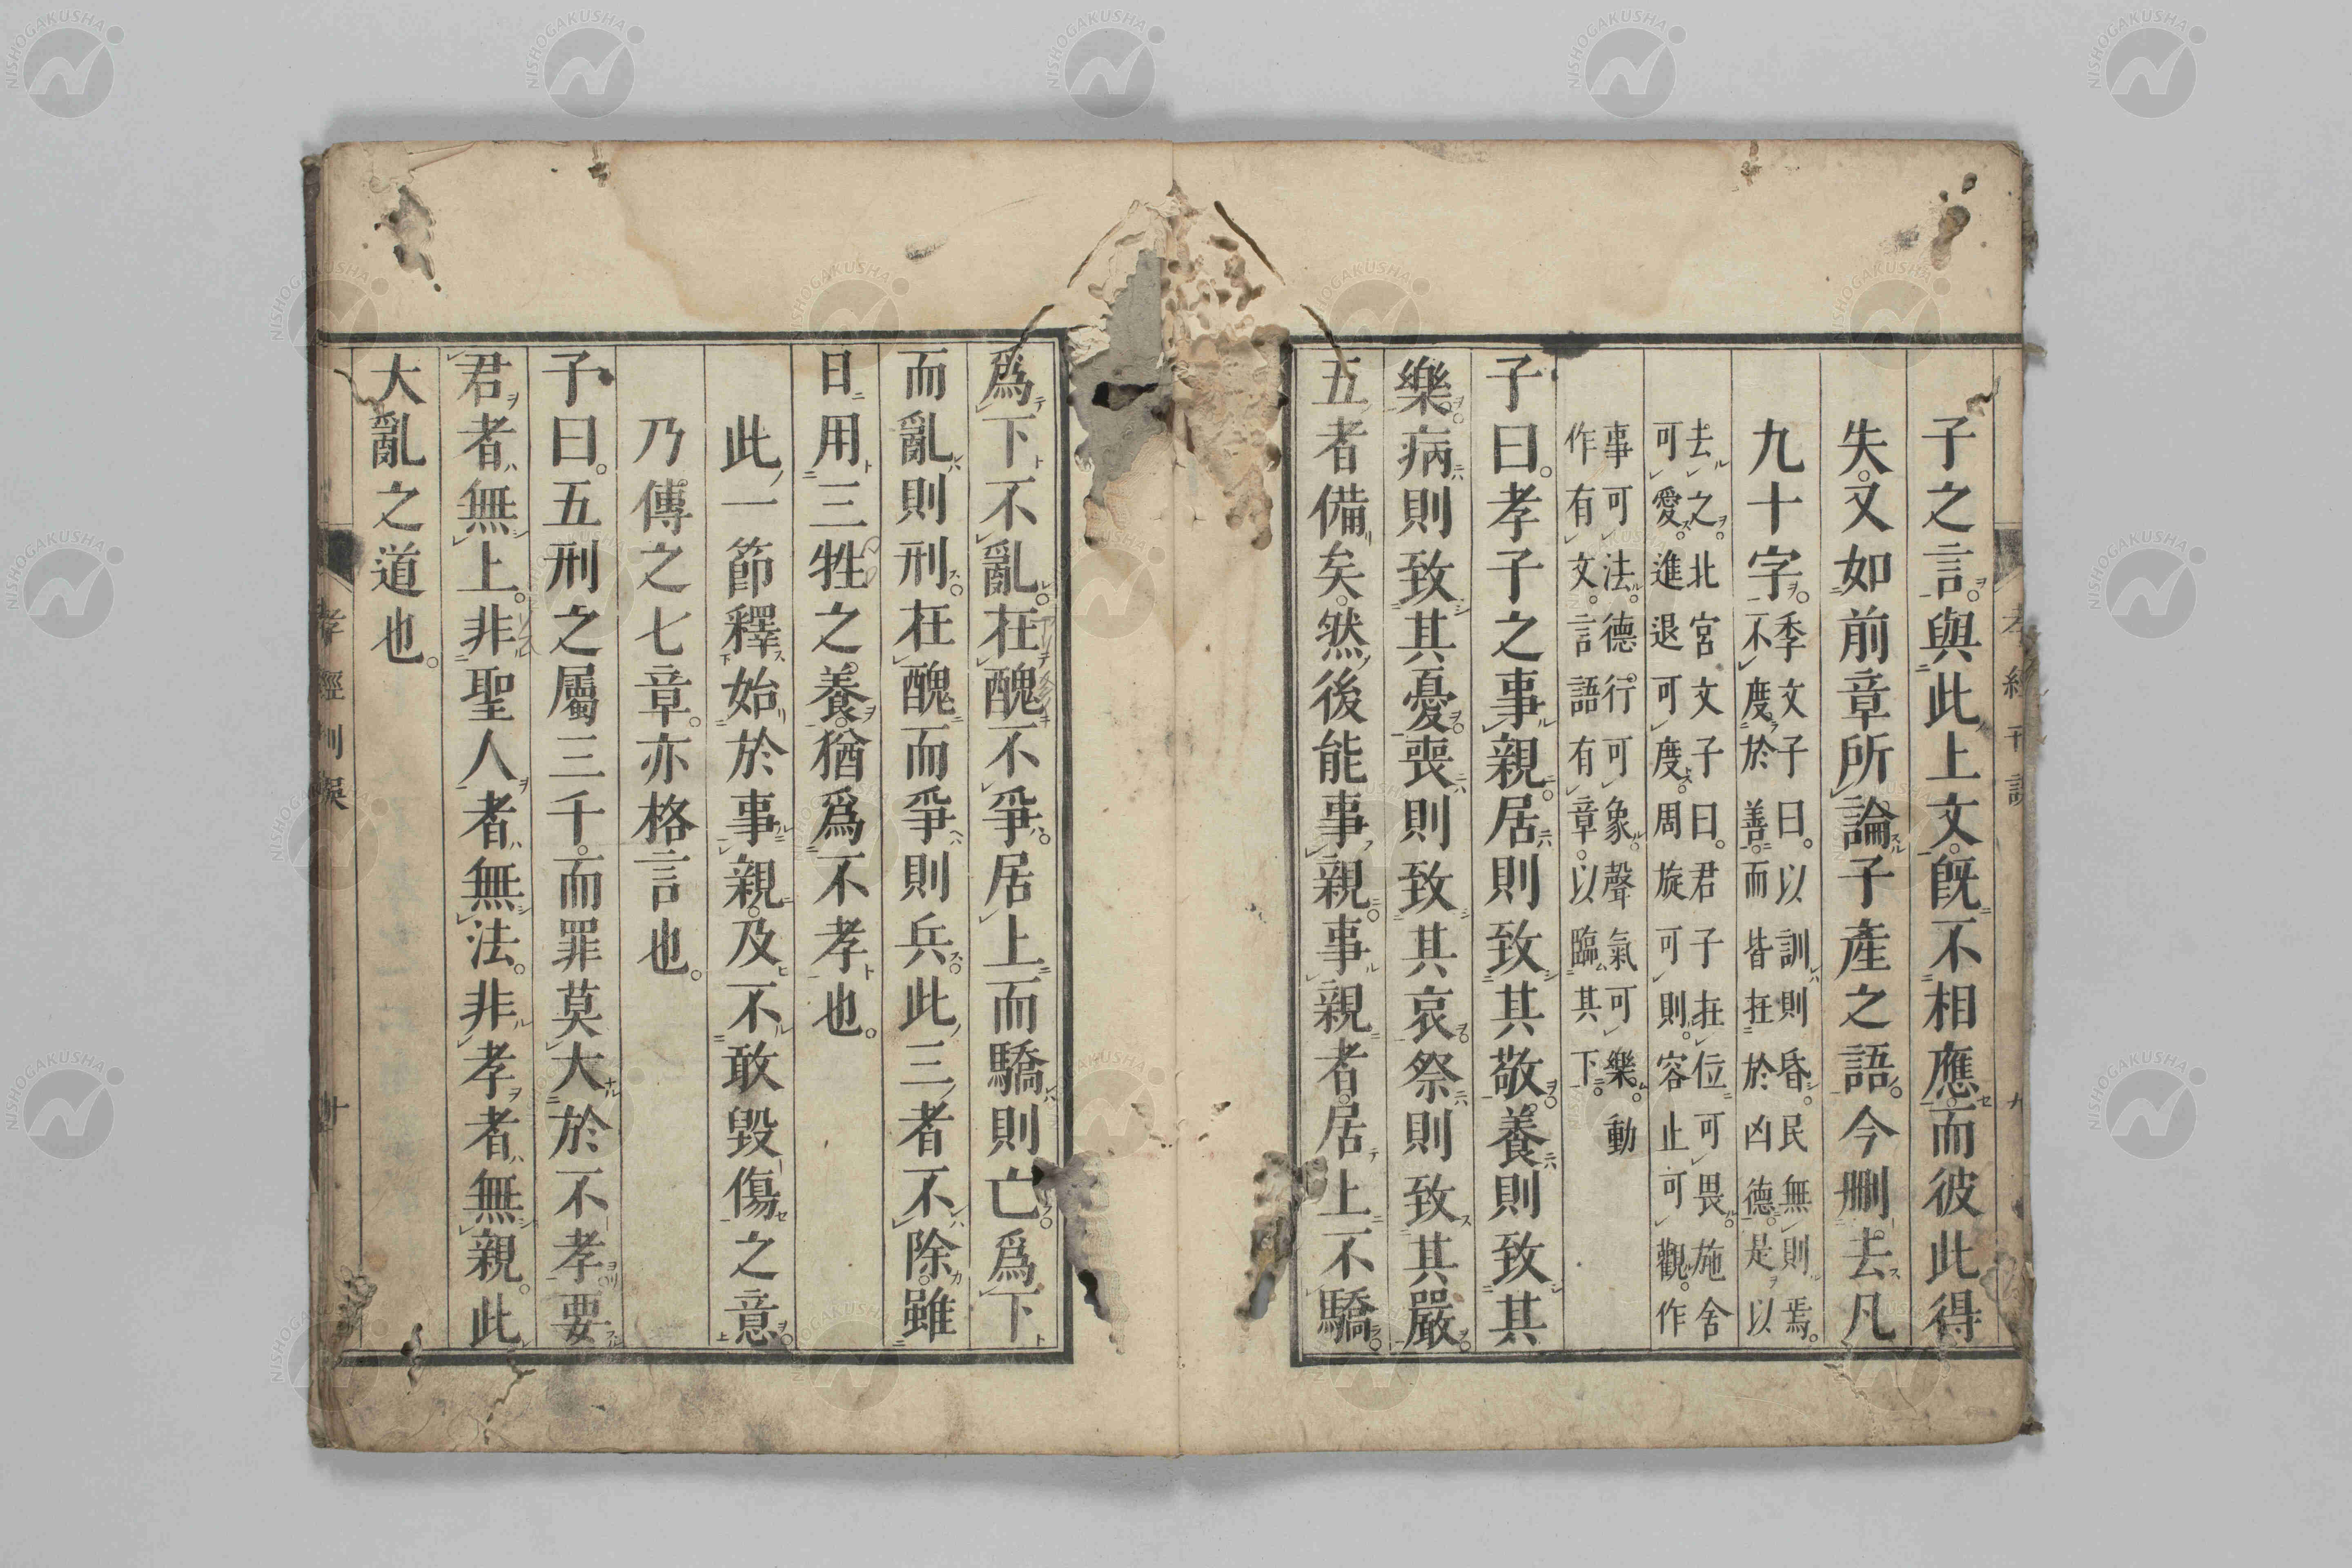 子之言與此上文旣不相應而彼此得
失又如前章所論子產之語今刪去凡
九十字季文子曰以訓則昏民無則焉
不度於善而皆在於凶德是以
去之北宮文子曰君子在位可畏施舍
可愛進退可度周旋可則容止可觀作
事可法德行可象聲氣可樂動
作有文言語有章以臨其下
子曰孝子之事親居則致其敬養則致其
樂病則致其憂喪則致其哀祭則致其嚴
五者備矣然後能事親事親者居上不驕
爲下不亂在醜不爭居上而驕則亡爲下
而亂則刑在醜而爭則兵此三者不除雖
日用三牲之養猶爲不孝也
此一節釋始於事親及不敢毀傷之意
乃傳之七章亦格言也
子曰五刑之屬三千而罪莫大於不孝要
君者無上非聖人者無法非孝者無親此
大亂之道也
孝經刊誤
十
NISHOGAKUSHA